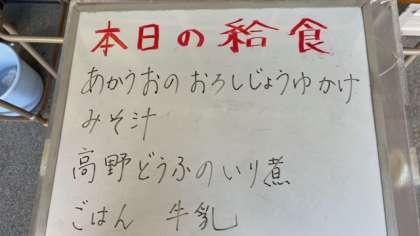 本日の給食
あかうおの おろしじょうゆかけ
みそ汁
高野どうふのいり煮
ごはん 牛乳